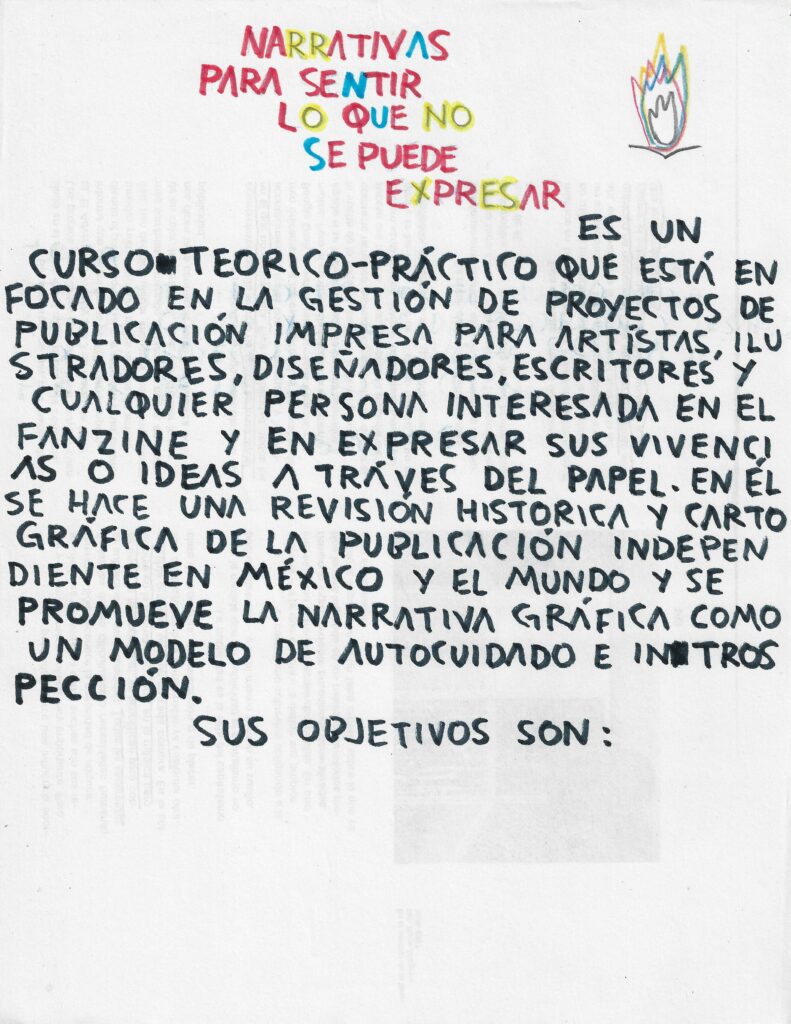 NARRATIVAS
PARA SENTIR
LO QUE NO
SE PUEDE
EXPRESAR
ES UN
CURSO TEORICO-PRÁCTICO QUE ESTÁ EN
FOCADO EN LA GESTIÓN DE PROYECTOS DE
PUBLICACIÓN IMPRESA PARA ARTÍSTAS, ILU
STRADORES, DISEÑADORES, ESCRITORES Y
CUALQUIER PERSONA INTERESADA EN EL
FANZINE Y EN EXPRESAR SUS VIVENCI
AS O IDEAS A TRÁVES DEL PAPEL. EN ÉL
SE HACE UNA REVISIÓN HISTORICA Y CARTO
GRÁFICA DE LA PUBLICACIÓN INDEPEN
DIENTE EN MÉXICO Y EL MUNDO Y SE
PROMUEVE LA NARRATIVA GRÁFICA COMO
UN MODELO DE AUTOCUIDADO E INTROS
PECCIÓN.
SUS OBJETIVOS SON: